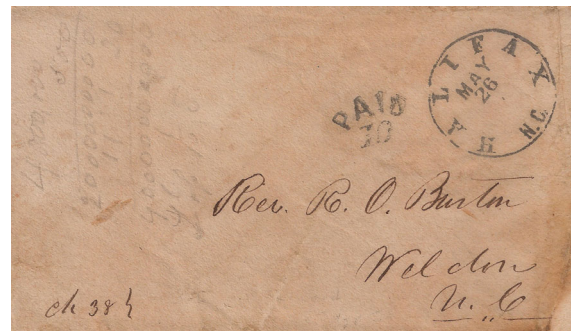 HALIFAX N.C.
MAY
26
PAID
10
Rev. R. O. Burton
Weldon
N. C
ch 38